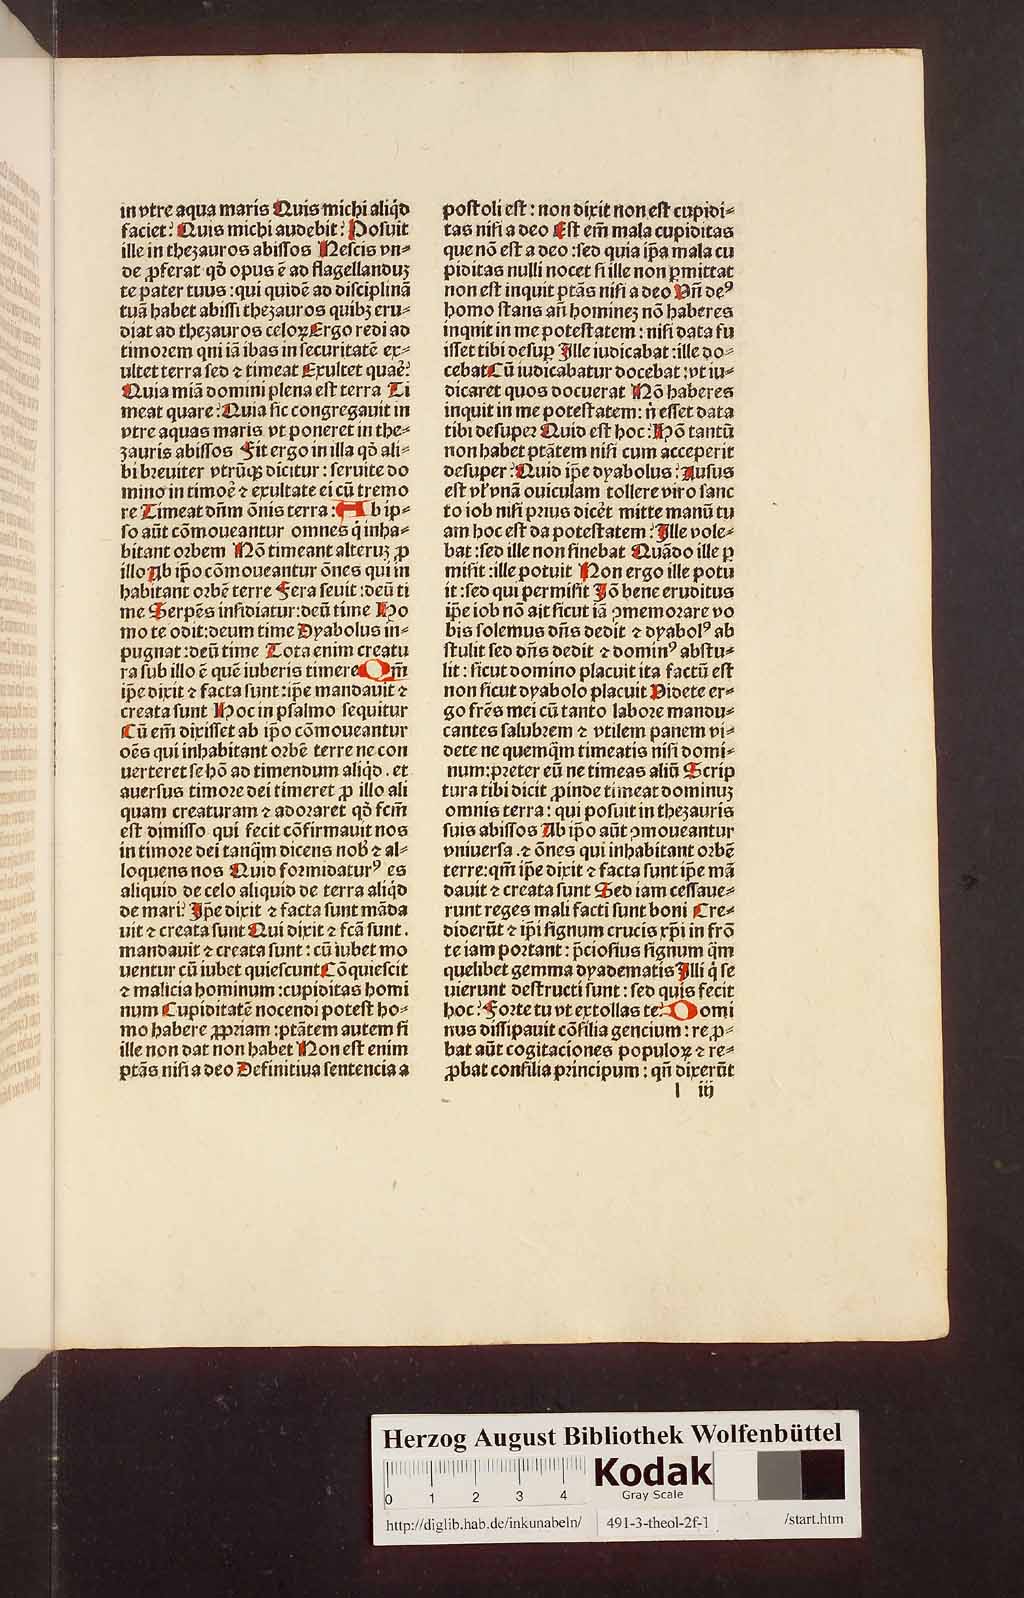 in vtre aqua maris Quis michi aliq̇d
faciet? Quis michi audebit? Posuit
ille in thezauros abissos Nescis vn⸗
de ꝓferat qd̄ opus ē ad flagellanduꝫ
te pater tuus : qui quidē ad disciplinā
tuā habet abissi thezauros quibꝫ eru⸗
diat ad thezauros celoꝝ Ergo redi ad
timorem qui iā ibas in securitatē ex⸗
ultet terra sed ⁊ timeat Exultet quae̛?
Quia mīa domini plena est terra Ti
meat quare? Quia sic congregauit in
vtre aquas maris vt poneret in the⸗
zauris abissos Fit ergo in illa qd̄ ali⸗
bi breuiter vtrūqꝫ dicitur : seruite do
mino in timoe̛ ⁊ exultate ei cū tremo
re Timeat dn̄m ōnis terra : Ab ip⸗
so aūt cōmoueantur omnes q̇ inha⸗
bitant orbem Nō timeant alteruꝫ ꝓ
illo Ab ip̄o cōmoueantur ōnes qui in
habitant orbē terre Fera seuit : deū ti
me Serpēs insidiatur : deū time Ho
mo te odit : deum time Dyabolus in⸗
pugnat : deū time Tota enim creatu
ra sub illo ē quē iuberis timere Qm̄
ip̄e dixit ⁊ facta sunt : ip̄e mandauit ⁊
creata sunt Hoc in psalmo sequitur
Cū em̄ dixisset ab ip̄o cōmoueantur
oēs qui inhabitant orbē terre ne con
uerteret se hō ad timendum aliq̇d . et
auersus timore dei timeret ꝓ illo ali
quam creaturam ⁊ adoraret qd̄ fcm̄
est dimisso qui fecit cōfirmauit nos
in timore dei tanq̄m dicens nob̄ ⁊ al⸗
loquens nos Quid formidaturꝰ es
aliquid de celo aliquid de terra aliq̇d
de mari? Ip̄e dixit ⁊ facta sunt māda
uit ⁊ creata sunt Qui dixit ⁊ fcā sunt .
mandauit ⁊ creata sunt : cū iubet mo
uentur cū iubet quiescunt Cōquiescit
⁊ malicia hominum : cupiditas homi
num Cupiditatē nocendi potest ho⸗
mo habere ꝓpriam : ptātem autem si
ille non dat non habet Non est enim
ptās nisi a deo Definitiua sentencia a
postoli est : non dixit non est cupidi⸗
tas nisi a deo Est em̄ mala cupiditas
que nō est a deo : sed quia ip̄a mala cu
piditas nulli nocet si ille non ꝑmittat
non est inquit ptās nisi a deo Vn̄ deꝰ
homo stans an̄ hominez nō haberes
inqnit in me potestatem : nisi data fu
isset tibi desuꝑ Ille iudicabat : ille do⸗
cebat Cū iudicabatur docebat : vt iu⸗
dicaret quos docuerat Nō haberes
inquit in me potestatem : n̄ esset data
tibi desuper Quid est hoc? Hō tantū
non habet ptātem nisi cum acceperit
desuper? Quid ip̄e dyabolus? Ausus
est vl̛ vnā ouiculam tollere viro sanc
to iob nisi prius dicēt mitte manū tu
am hoc est da potestatem? Ille vole⸗
bat : sed ille non sinebat Quādo ille ꝑ
misit : ille potuit Non ergo ille potu
it : sed qui permisit Iō bene eruditus
ip̄e iob nō ait sicut iā ꝯmemorare vo
bis solemus dn̄s dedit ⁊ dyabolꝰ ab
stulit sed dn̄s dedit ⁊ dominꝰ abstu⸗
lit : sicut domino placuit ita factū est
non sicut dyabolo placuit Videte er⸗
go frēs mei cū tanto labore mandu⸗
cantes salubrem ⁊ vtilem panem vi⸗
dete ne quemq̄m timeatis nisi domi⸗
num : preter eū ne timeas aliū Scrip
tura tibi dicit ꝓinde timeat dominuꝫ
omnis terra : qui posuit in thezauris
suis abissos Ab ip̄o aūt ꝯmoueantur
vniuersa . ⁊ ōnes qui inhabitant orbē
terre : qm̄ ip̄e dixit ⁊ facta sunt ip̄e mā
dauit ⁊ creata sunt Sed iam cessaue⸗
runt reges mali facti sunt boni Cre⸗
diderūt ⁊ ip̄i signum crucis xp̄i in frō
te iam portant : p̄ciosius signum q̄m
quelibet gemma dyadematis Illi q̇ se
uierunt destructi sunt : sed quis fecit
hoc? Forte tu vt extollas te? Domi
nus dissipauit cōsilia gencium : re ꝓ⸗
bat aūt cogitaciones populoꝝ ⁊ re⸗
ꝓbat consilia principum : qn̄ dixerūt
l iij
Herzog August Bibliothek Wolfenbüttel
0 1 2 3 4
Kodak
Gray Scale
http://diglib.hab.de/inkunabeln/ 491-3-theol-2f-1 /start.htm